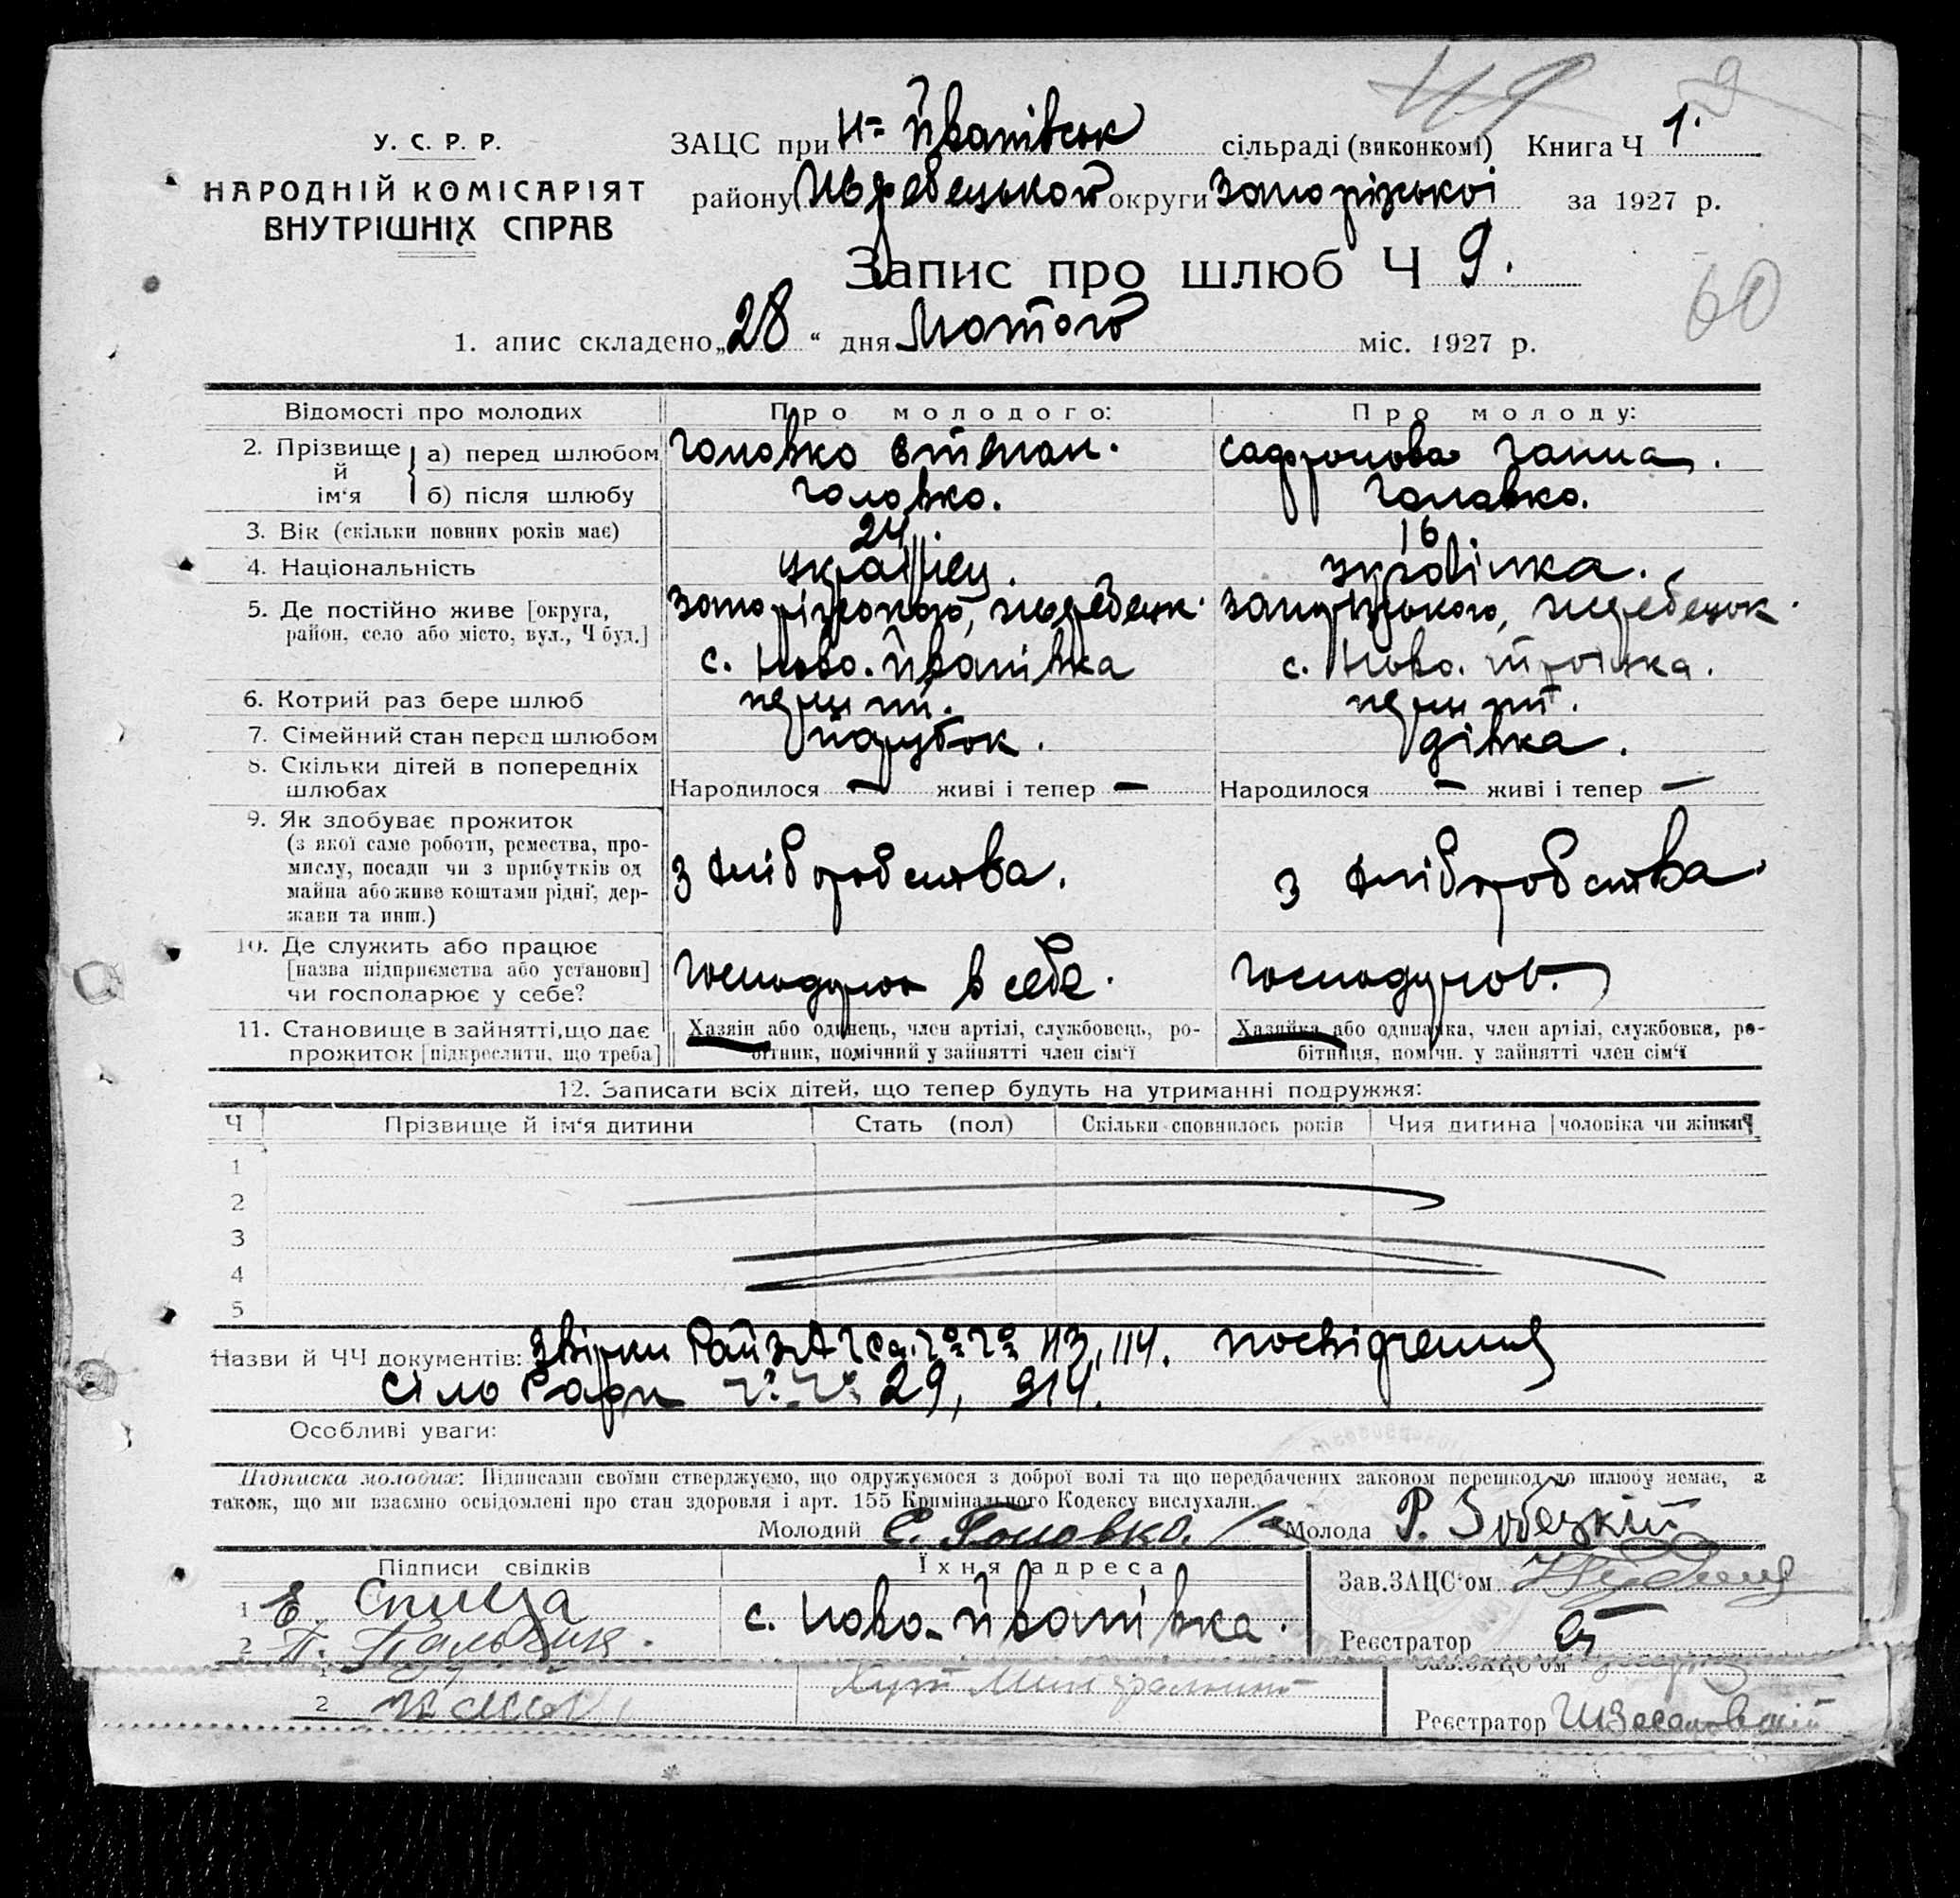 119 9
У. С. Р. Р.
НАРОДНІЙ КОМІСАРІЯТ
ВНУТРІШНІХ СПРАВ
ЗАЦС при Н-Йванівськ сільраді (виконкомі) Книга Ч 1.
району Жеребецького округи Запорізької за 1927 р.
Запис про шлюб Ч 9.
60
1. апис складено „28“ дня Лютого міс. 1927 р.
Відомості про молодих Про молодого: Про молоду:
2. Прізвище й ім‘я а) перед шлюбом Головко Степан. Сафронова Ганна.
б) після шлюбу Головко. Головко.
3. Вік (скільки повних років має) 24 16
4. Національність українец. українка.
5. Де постійно живе [округа, Запорізького, жеребецьк. Запорізького, жеребецьк.
район, село або місто, вул., Ч буд.] с. Ново-Йванівка с. Ново-троїцка.
6. Котрий раз бере шлюб перший. перший.
7. Сімейний стан перед шлюбом парубок. дівка.
8. Скільки дітей в попередніх
шлюбах Народилося — живі і тепер — Народилося — живі і тепер —
9. Як здобуває прожиток
(з якої саме роботи, ремества, про-
мислу, посади чи з прибутків од з хліборобства. з хліборобства.
майна або живе коштами рідні, дер-
жави та инш.)
10. Де служить або працює
[назва підприємства або установи] Господарює в себе. Господарює.
чи господарює у себе?
11. Становище в зайнятті, що дає Хазяїн або одинець, член артілі, службовець, ро- Хазяйка або одиначка, член артілі, службовка, ро-
прожиток [підкреслити, що треба] бітник, помічний у зайнятті член сім‘ї бітниця, помічн. у зайнятті член сім‘ї
12. Записати всіх дітей, що тепер будуть на утриманні подружжя:
Ч Прізвище й ім‘я дитини Стать (пол) Скільки сповнилось років Чия дитина [чоловіка чи жінки]
1
2
3
4
5
Назви й ЧЧ документів: Звірки РайзАГСа №№ 113, 114. посвідчення
сілоРади №№ 29, 314.
Особливі уваги:
Підписка молодих: Підписами своїми стверджуємо, що одружуємося з доброї волі та що передбачених законом перешкод до шлюбу немає, а
також, що ми взаємно освідомлені про стан здоровля і арт. 155 Кримінального Кодексу вислухали.
Молодий С. Головко. Молода Р.
Підписи свідків Їхня адреса Зав.ЗАЦС‘ом
1 Е. Спица с. Ново-Йванівка.
2 Реєстратор
Зав.ЗАЦС‘ом
2 Реєстратор